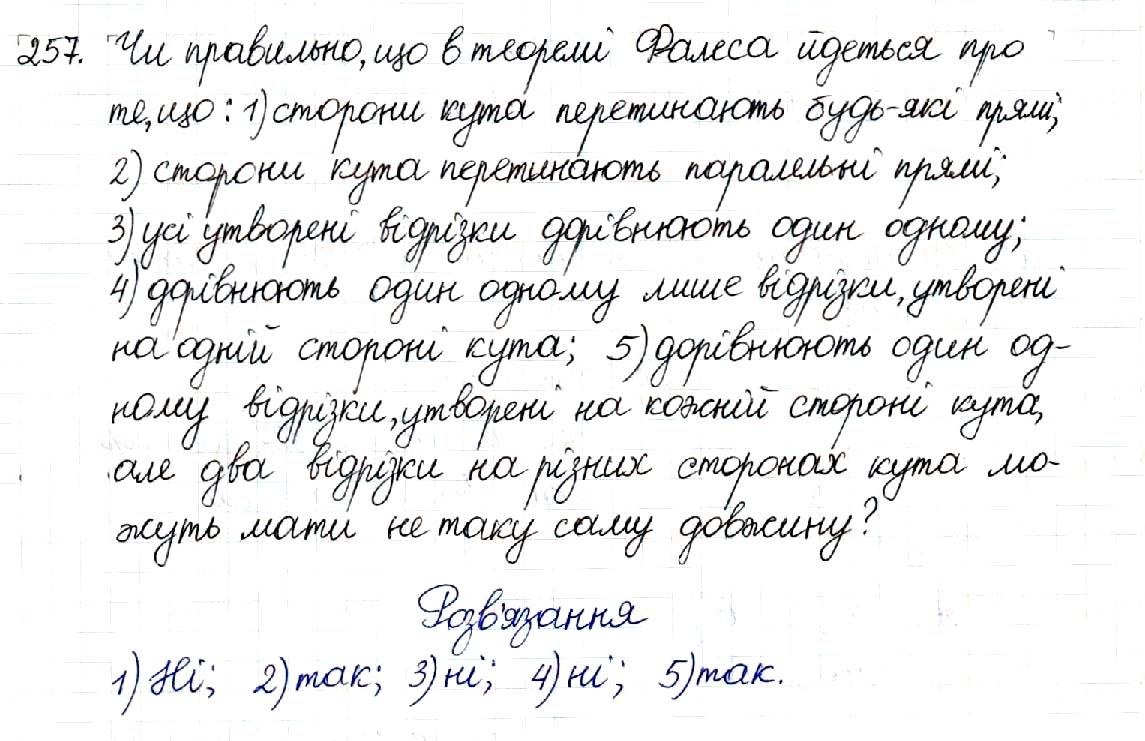 257. Чи правильно, що в теоремі Фалеса йдеться про
те, що: 1) сторони кута перетинають будь-які прямі;
2) сторони кута перетинають паралельні прямі;
3) усі утворені відрізки дорівнюють один одному;
4) дорівнюють один одному лише відрізки, утворені
на одній стороні кута; 5) дорівнюють один од-
ному відрізки, утворені на кожній стороні кута,
але два відрізки на різних сторонах кута мо-
жуть мати не таку саму довжину?
Розв'язання
1) Ні; 2) так; 3) ні; 4) ні; 5) так.